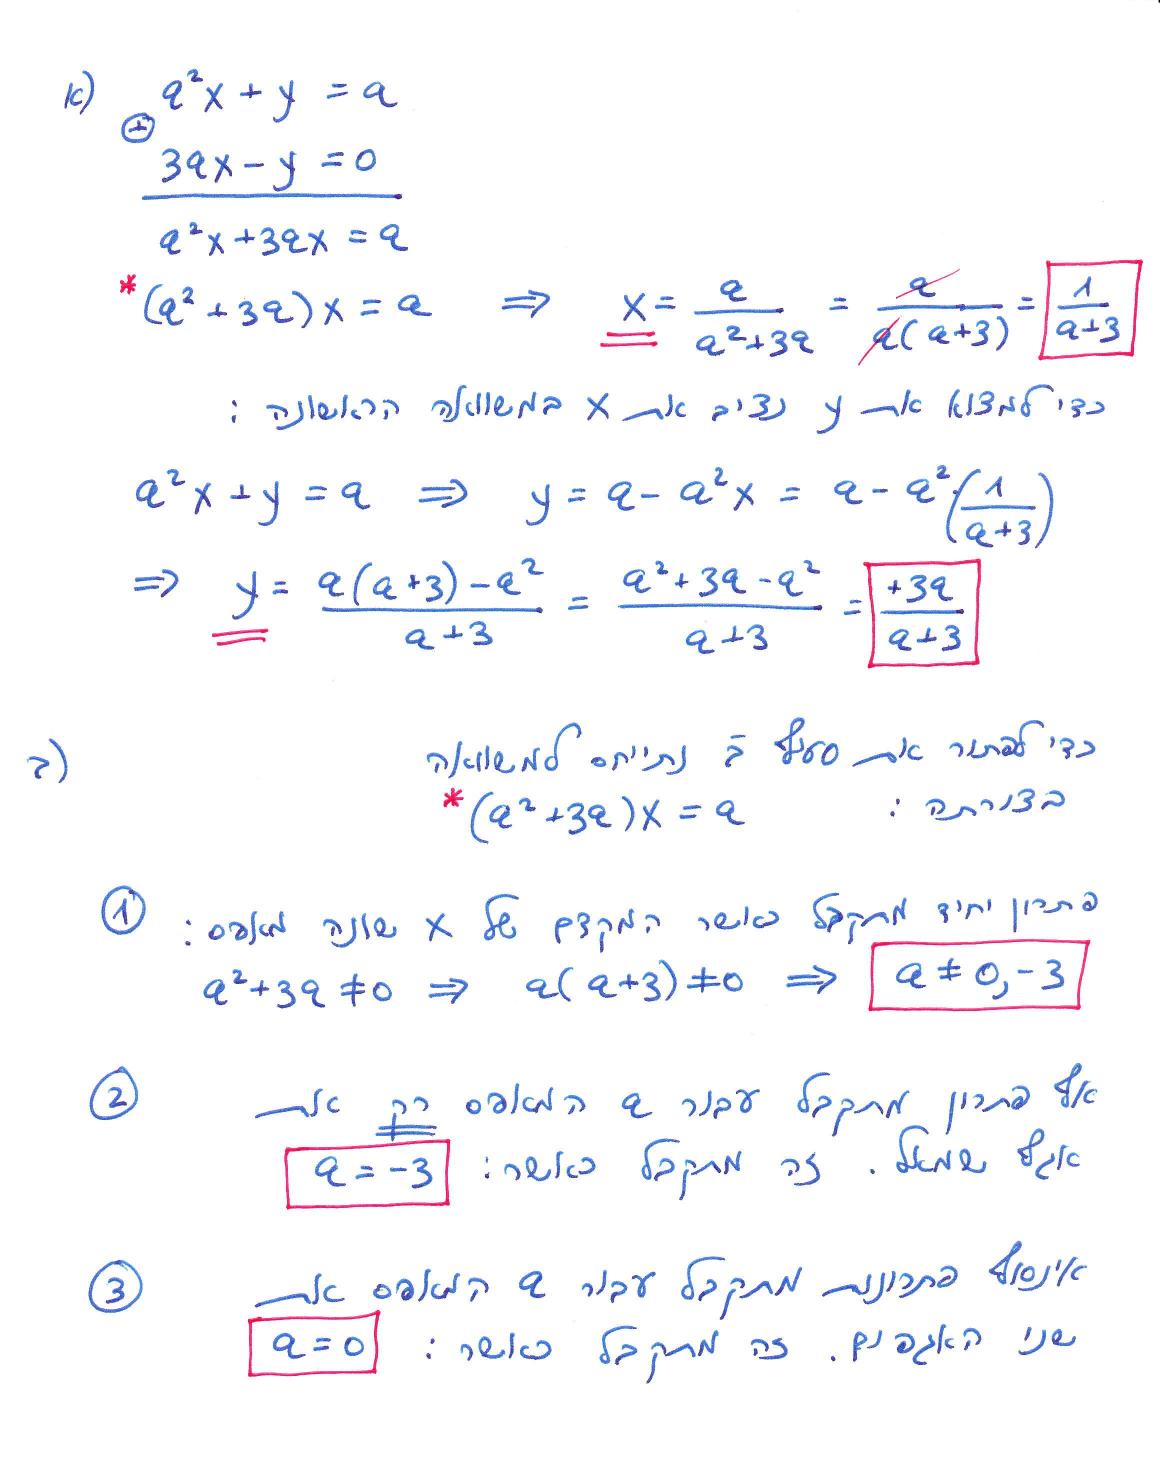 א) a²x + y = a
⊕
3ax - y = 0
a²x + 3ax = a
* (a² + 3a)x = a ⇒ x = a/(a² + 3a) = a/(a(a+3)) = 1/(a+3)
כדי למצוא את y נציב את x במשוואה הראשונה :
a²x + y = a ⇒ y = a - a²x = a - a²·(1/(a+3))
⇒ y = (a(a+3) - a²)/(a+3) = (a² + 3a - a²)/(a+3) = +3a/(a+3)
ב) כדי לפתור את סעיף ב נתייחס למשוואה
בצורתה : * (a² + 3a)x = a
① פתרון יחיד מתקבל כאשר המקדם של x שונה מאפס :
a² + 3a ≠ 0 ⇒ a(a+3) ≠ 0 ⇒ a ≠ 0, -3
② אף פתרון מתקבל עבור a המאפס רק את
אגף שמאל. זה מתקבל כאשר : a = -3
③ אינסוף פתרונות מתקבל עבור a המאפס את
שני האגפים. זה מתקבל כאשר : a = 0